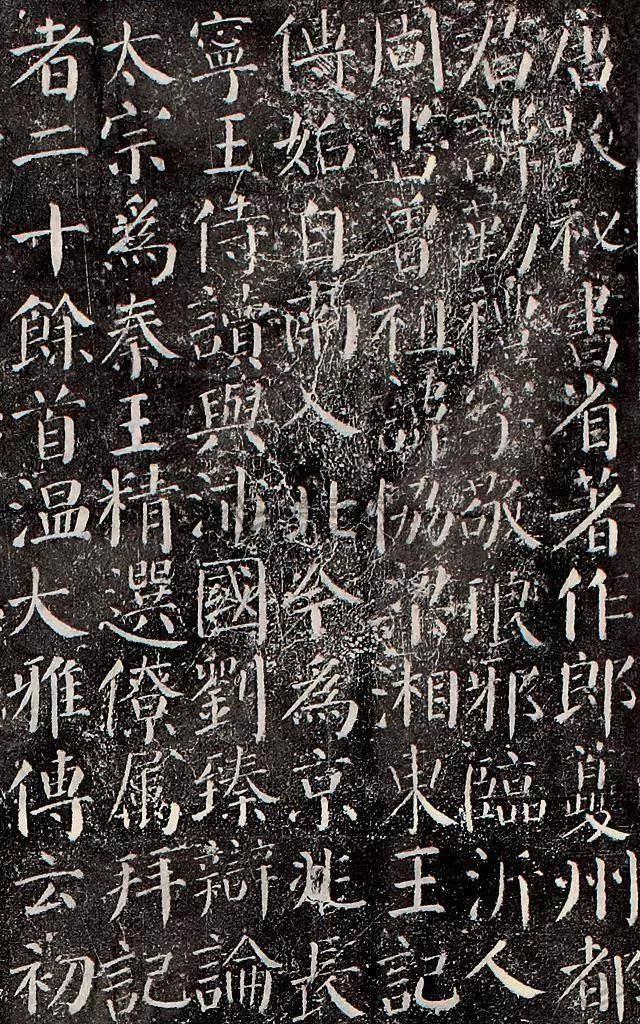 唐故秘書省著作郎夔州都
君諱勤禮字敬琅邪臨沂人
周書曾祖諱協梁湘東王記
傳始自南入北今為京兆長
寧王侍讀與沛國劉臻辯論
太宗爲秦王精選僚属拜記
者二十餘首温大雅傳云初